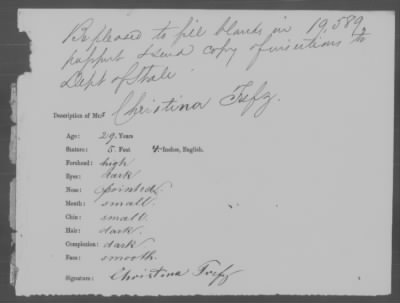 Be pleased to fill blanks in 19,589,
passport & send copy of insertions to
Dept of State
Description of Mrs Christina Tefz.
Age: 29 Years
Stature: 5 Feet 4 Inches, English.
Forehead: high
Eyes: dark
Nose: pointed
Mouth: small.
Chin: small.
Hair: dark.
Complexion: dark
Face: smooth.
Signature: Christina Tefz